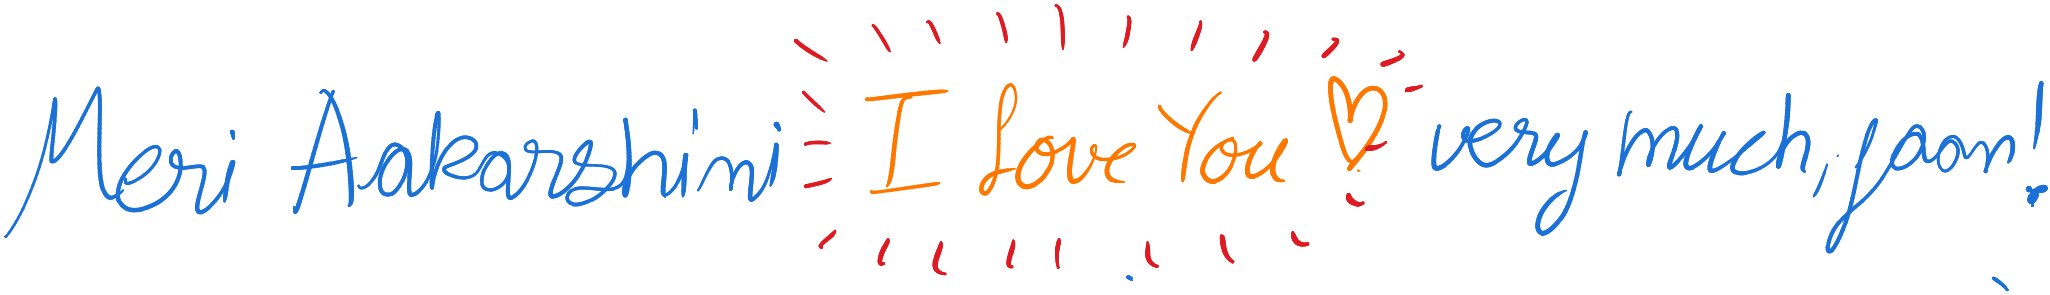 Meri Aakarshini I Love You ♡ very much, jaan!